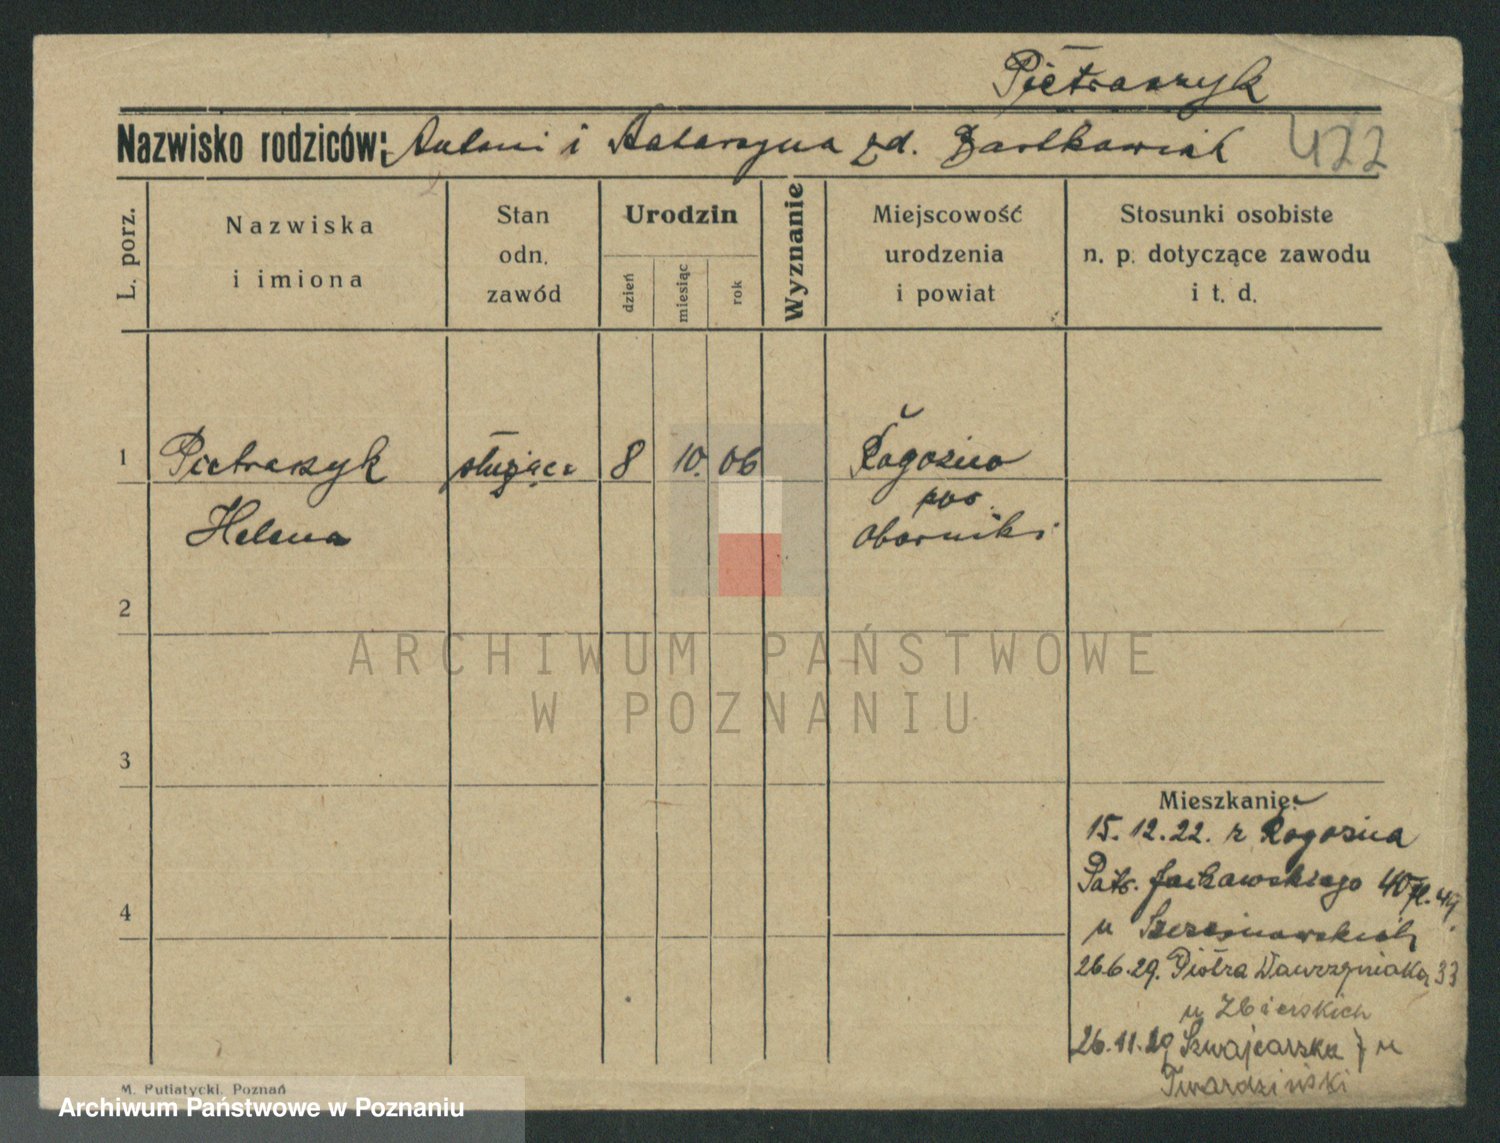 Pietraszyk
Nazwisko rodziców: Antoni i Katarzyna zd. Bartkowiak 422
L. porz.
Nazwiska
i imiona
Stan
odn.
zawód
Urodzin
dzień
miesiąc
rok
Wyznanie
Miejscowość
urodzenia
i powiat
Stosunki osobiste
n. p. dotyczące zawodu
i t. d.
1 Pietraszyk służąca 8 10. 06 Rogoźno
Helena
pow.
Oborniki
2
ARCHIWUM PAŃSTWOWE
W POZNANIU
3
Mieszkanie:
15.12.22. z Rogoźna
Patr. Jackowskiego 40
u
26.6.29. Piotra Wawrzyniaka 33
u Zbierskich
26.11.29 Szwajcarska u
Twardziński
4
M. Putiatycki, Poznań
Archiwum Państwowe w Poznaniu